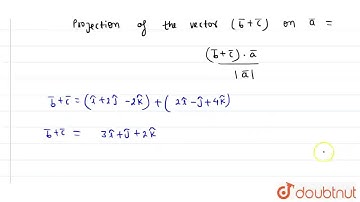 Projection of the vector (b̄+c̄) on ā =
(b̄+c̄)·ā
|ā|
b̄+c̄ = (î+2ĵ -2k̂) + (2î-ĵ+4k̂)
b̄+c̄ = 3î+ĵ+2k̂
doubtnut